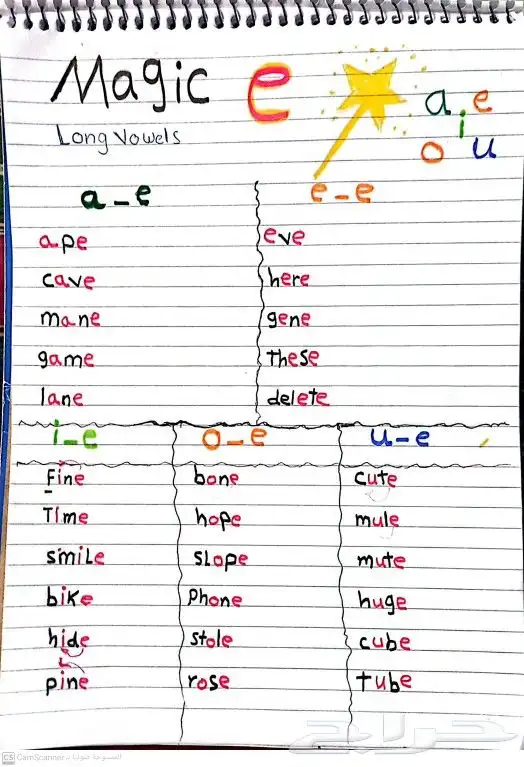 Magic e
Long Vowels
a e
i
o u
a_e
ape
cave
mane
game
lane
e_e
eve
here
gene
These
delete
i_e
Fine
Time
smile
bike
hide
pine
o_e
bone
hope
slope
Phone
stole
rose
u_e
cute
mule
mute
huge
cube
tube
حراج
CS CamScanner الممسوحة ضوئيا بـ